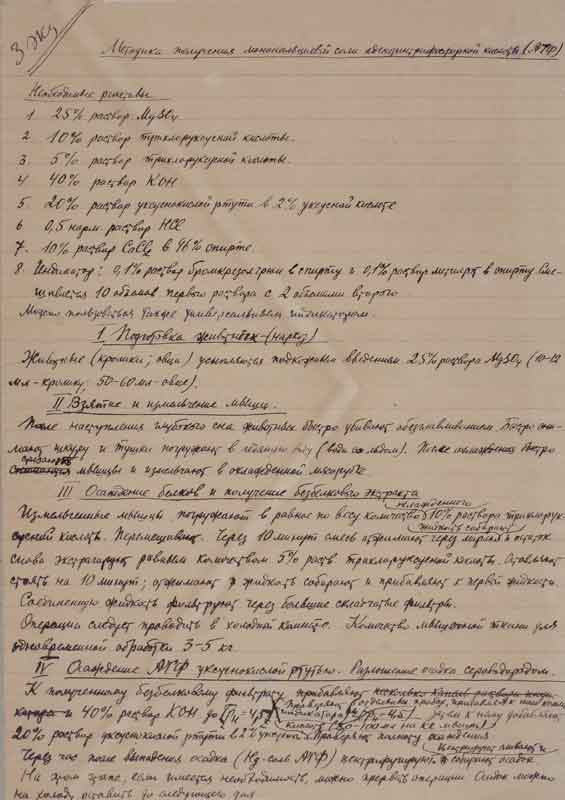 3 экз
Методика получения монокальциевой соли аденозинтрифосфорной кислоты (АТФ)
Необходимые растворы
1 25% раствор MgSO4
2 10% раствор трихлоруксусной кислоты.
3. 5% раствор трихлоруксусной кислоты.
4 40% раствор KOH
5 20% раствор уксуснокислой ртути в 2% уксусной кислоте
6 0,5 норм. раствор HCl
7. 10% раствор CaCl2 в 96% спирте.
8. Индикатор: 0,1% раствор в спирту и 0,1% раствор в спирту Сме-
шивается 10 объемов первого раствора с 2 объемами второго
Можно пользоваться также универсальным индикатором.
I Подготовка животных (наркоз)
Животные (кролики; овцы) усыпляются подкожным введением 25% раствора MgSO4 (10-12
мл - кролику; 50-60 мл - овце).
II Взятие и измельчение мышц.
После наступления глубокого сна животных быстро убивают обезглавливанием. Быстро сни-
мают шкуру и тушки погружают в ледяную воду (вода со льдом). После охлаждения быстро
срезают мышцы и измельчают в охлажденной мясорубке
III Осаждение белков и получение безбелкового экстракта
охлажденного
Измельченные мышцы погружают в равное по весу количество 10% раствора трихлорук-
жидкость собирают
сусной кислоты. Перемешивают. Через 10 минут смесь отжимают через марлю и остаток
снова экстрагируют равным количеством 5% раств. трихлоруксусной кислоты. Оставляют
стоять на 10 минут; отжимают жидкость собирают и прибавляют к первой жидкости.
Соединенную жидкость фильтруют через большие складчатые фильтры.
Операции следует проводить в холодной комнате. Количество мышечной ткани для
одновременной обработки 3-5 кг.
IV Осаждение АТФ уксуснокислой ртутью. Разложение осадка сероводородом.
К полученному безбелковому фильтрату прибавляют несколько капель раствора
и 40% раствор KOH до
20% раствор уксуснокислой ртути в 2% уксусной Проверяют полноту осаждения
Через час после выпадения осадка (Hg-соль АТФ) центрифугируют и собирают осадок
На этом этапе, если имеется необходимость, можно прервать операции Осадок можно
на холоду оставить до следующего дня